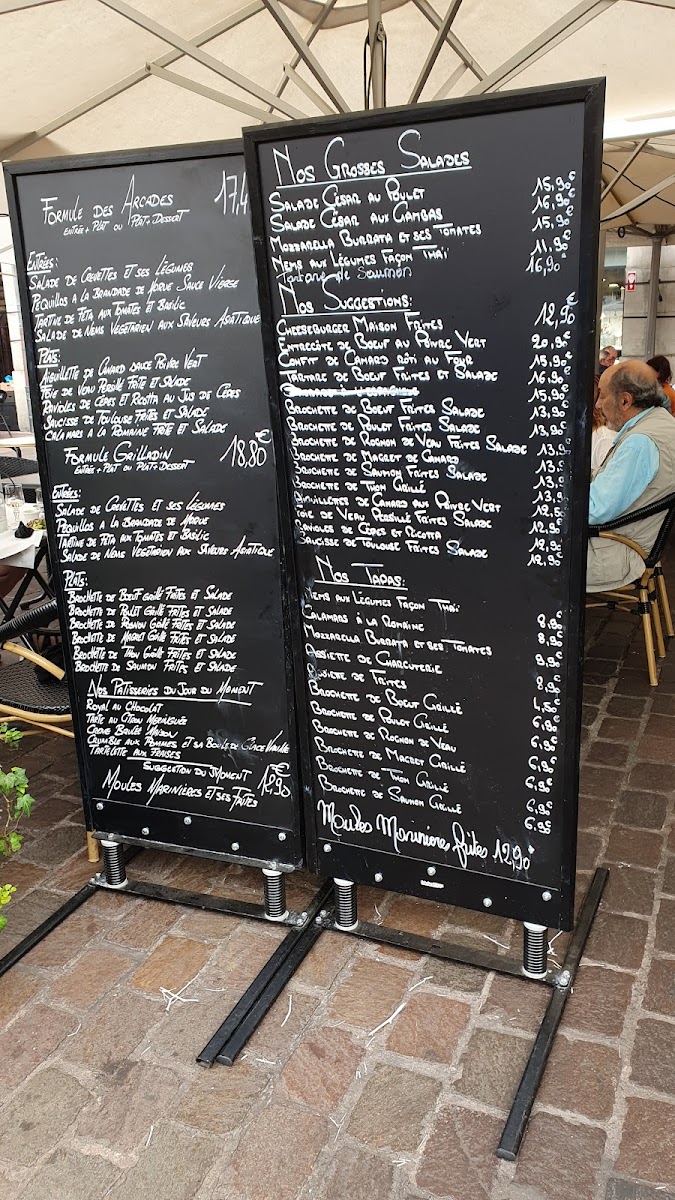 Formule des Arcades 17,4
Entrée + Plat ou Plat + Dessert
Entrées:
Salade de Crevettes et ses Légumes
Pequillos a la Brandade de Morue Sauce Vierge
Tartine de Feta aux Tomates et Basilic
Salade de Nems Vegetarien aux Saveurs Asiatique
Plats:
Aiguillette de Canard sauce Poivre Vert
Foie de Veau Persillé Frite et Salade
Ravioles de Cèpes et Ricotta au Jus de Cèpes
Saucisse de Toulouse Frites et Salade
Calamars a la Romaine Frite et Salade
Formule Grilladin 18,80€
Entrée + Plat ou Plat + Dessert
Entrées:
Salade de Crevettes et ses Légumes
Pequillos a la Brandade de Morue
Tartine de Feta aux Tomates et Basilic
Salade de Nems Vegetarien aux Saveurs Asiatique
Plats:
Brochette de Boeuf Grillé Frites et Salade
Brochette de Poulet Grillé Frites et Salade
Brochette de Rognon Grillé Frites et Salade
Brochette de Magret Grillé Frites et Salade
Brochette de Thon Grillé Frites et Salade
Brochette de Saumon Frites et Salade
Nos Patisseries du Jour du Moment
Royal au Chocolat
Tarte au Citron Meringuée
Creme Brulée Maison
Crumble aux Pommes et sa Boule de Glace Vanille
Tartelette aux Fraises
Suggestion du Moment
Moules Marinières et ses Frites 12,90€
Nos Grosses Salades
Salade César au Poulet 15,90€
Salade César aux Gambas 16,90€
Mozzarella Burrata et ses Tomates 15,90€
Nems aux Légumes Façon Thaï 11,90€
Tartare de Saumon 16,90€
Nos Suggestions:
Cheeseburger Maison Frites 12,90€
Entrecôte de Boeuf au Poivre Vert 20,90€
Confit de Canard rôti au Four 15,90€
Tartare de Boeuf Frites et Salade 16,90€
15,90€
Brochette de Boeuf Frites Salade 13,90€
Brochette de Poulet Frites Salade 13,90€
Brochette de Rognon de Veau Frites Salade 13,90€
Brochette de Magret de Canard 13,9
Brochette de Saumon Frites Salade 13,9
Brochette de Thon Grillé 13,9
Aiguillettes de Canard aux Poivre Vert 12,5
Foie de Veau Persillé Frites Salade 12,90€
Ravioles de Cèpes et Ricotta 12,90€
Saucisse de Toulouse Frites Salade 12,90€
Nos Tapas:
Nems aux Légumes Façon Thaï 8,90€
Calamars à la Romaine 8,90€
Mozzarella Burrata et ses Tomates 9,90€
Assiette de Charcuterie 8,90€
Assiette de Frites 4,50€
Brochette de Boeuf Grillé 6,90€
Brochette de Poulet Grillé 6,90€
Brochette de Rognon de Veau 6,90€
Brochette de Magret Grillé 6,90€
Brochette de Thon Grillé 6,90€
Brochette de Saumon Grillé 6,90€
Moules Marinière frites 12,90€